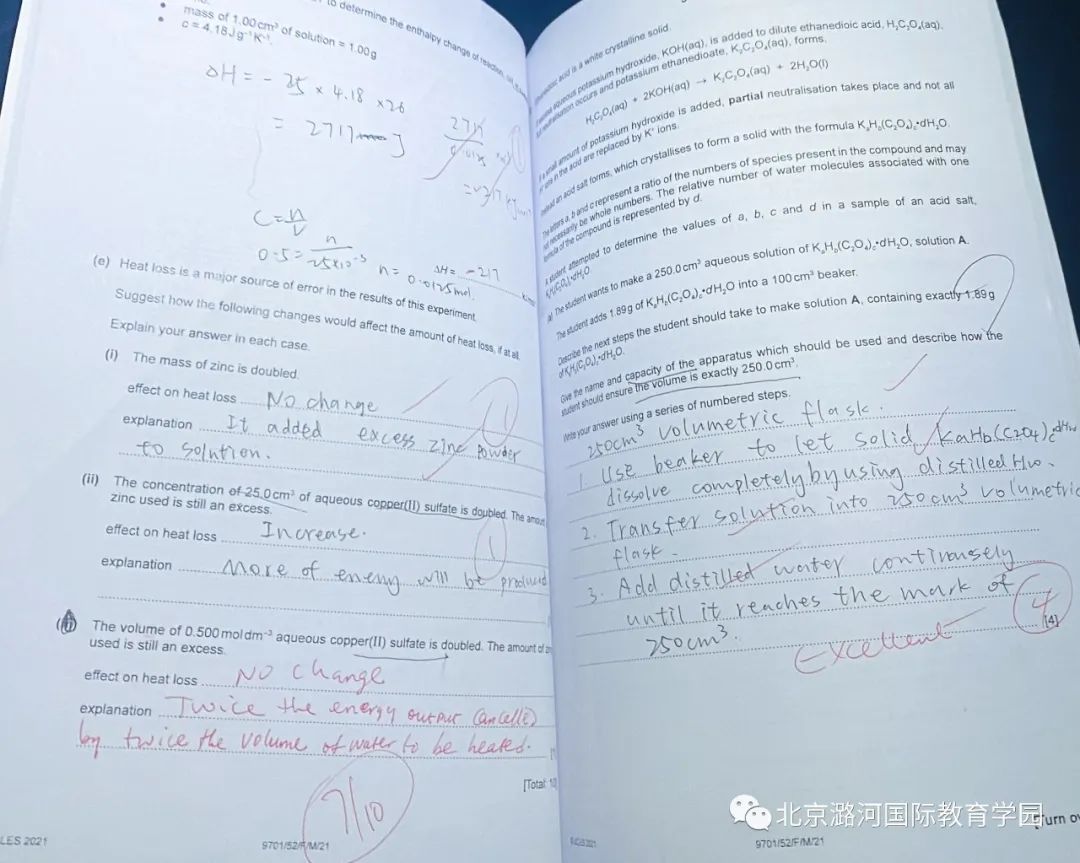 to determine the enthalpy change of reaction,
mass of 1.00 cm³ of solution = 1.00 g
c = 4.18 J g⁻¹ K⁻¹.
ΔH = - 25 × 4.18 × 26
= 2717 J
2717
C = n/V
0.5 = n / 25×10⁻³
n = 0.0125 mol.
ΔH = -217
(e) Heat loss is a major source of error in the results of this experiment.
Suggest how the following changes would affect the amount of heat loss, if at all.
Explain your answer in each case.
(i) The mass of zinc is doubled.
effect on heat loss No change
explanation It added excess zinc powder
to solution.
1
(ii) The concentration of 25.0 cm³ of aqueous copper(II) sulfate is doubled. The amount
zinc used is still an excess.
effect on heat loss Increase.
explanation More of energy will be produced
1
The volume of 0.500 mol dm⁻³ aqueous copper(II) sulfate is doubled. The amount of
used is still an excess.
effect on heat loss No change
explanation Twice the energy output cancelled
by twice the volume of water to be heated.
[Total: 10
7/10
LES 2021
9701/52/F/M/21
acid is a white crystalline solid.
aqueous potassium hydroxide, KOH(aq), is added to dilute ethanedioic acid, H₂C₂O₄(aq),
neutralisation occurs and potassium ethanedioate, K₂C₂O₄(aq), forms.
H₂C₂O₄(aq) + 2KOH(aq) → K₂C₂O₄(aq) + 2H₂O(l)
small amount of potassium hydroxide is added, partial neutralisation takes place and not all
in the acid are replaced by K⁺ ions.
Instead an acid salt forms, which crystallises to form a solid with the formula KₐH_b(C₂O₄)_c•dH₂O.
The letters a, b and c represent a ratio of the numbers of species present in the compound and may
not necessarily be whole numbers. The relative number of water molecules associated with one
formula of the compound is represented by d.
A student attempted to determine the values of a, b, c and d in a sample of an acid salt,
KₐH_b(C₂O₄)_c•dH₂O.
(a) The student wants to make a 250.0 cm³ aqueous solution of KₐH_b(C₂O₄)_c•dH₂O, solution A.
The student adds 1.89 g of KₐH_b(C₂O₄)_c•dH₂O into a 100 cm³ beaker.
Describe the next steps the student should take to make solution A, containing exactly 1.89 g
of KₐH_b(C₂O₄)_c•dH₂O.
Give the name and capacity of the apparatus which should be used and describe how the
student should ensure the volume is exactly 250.0 cm³.
Write your answer using a series of numbered steps.
250cm³ volumetric flask.
1. Use beaker to let solid KaHb(C2O4)c·dH2O
dissolve completely by using distilled H2O.
2. Transfer solution into 250cm³ volumetric
flask.
3. Add distilled water continuously
until it reaches the mark of
250cm³.
4
[4]
Excellent
9701/52/F/M/21
Turn ov
北京潞河国际教育学园